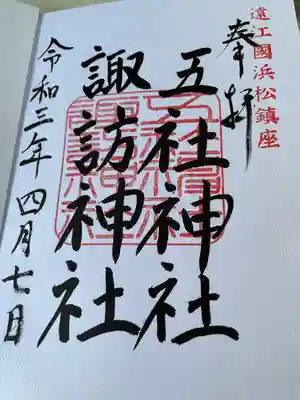 遠江國浜松鎮座
奉拝
五社神社
諏訪神社
令和三年四月七日